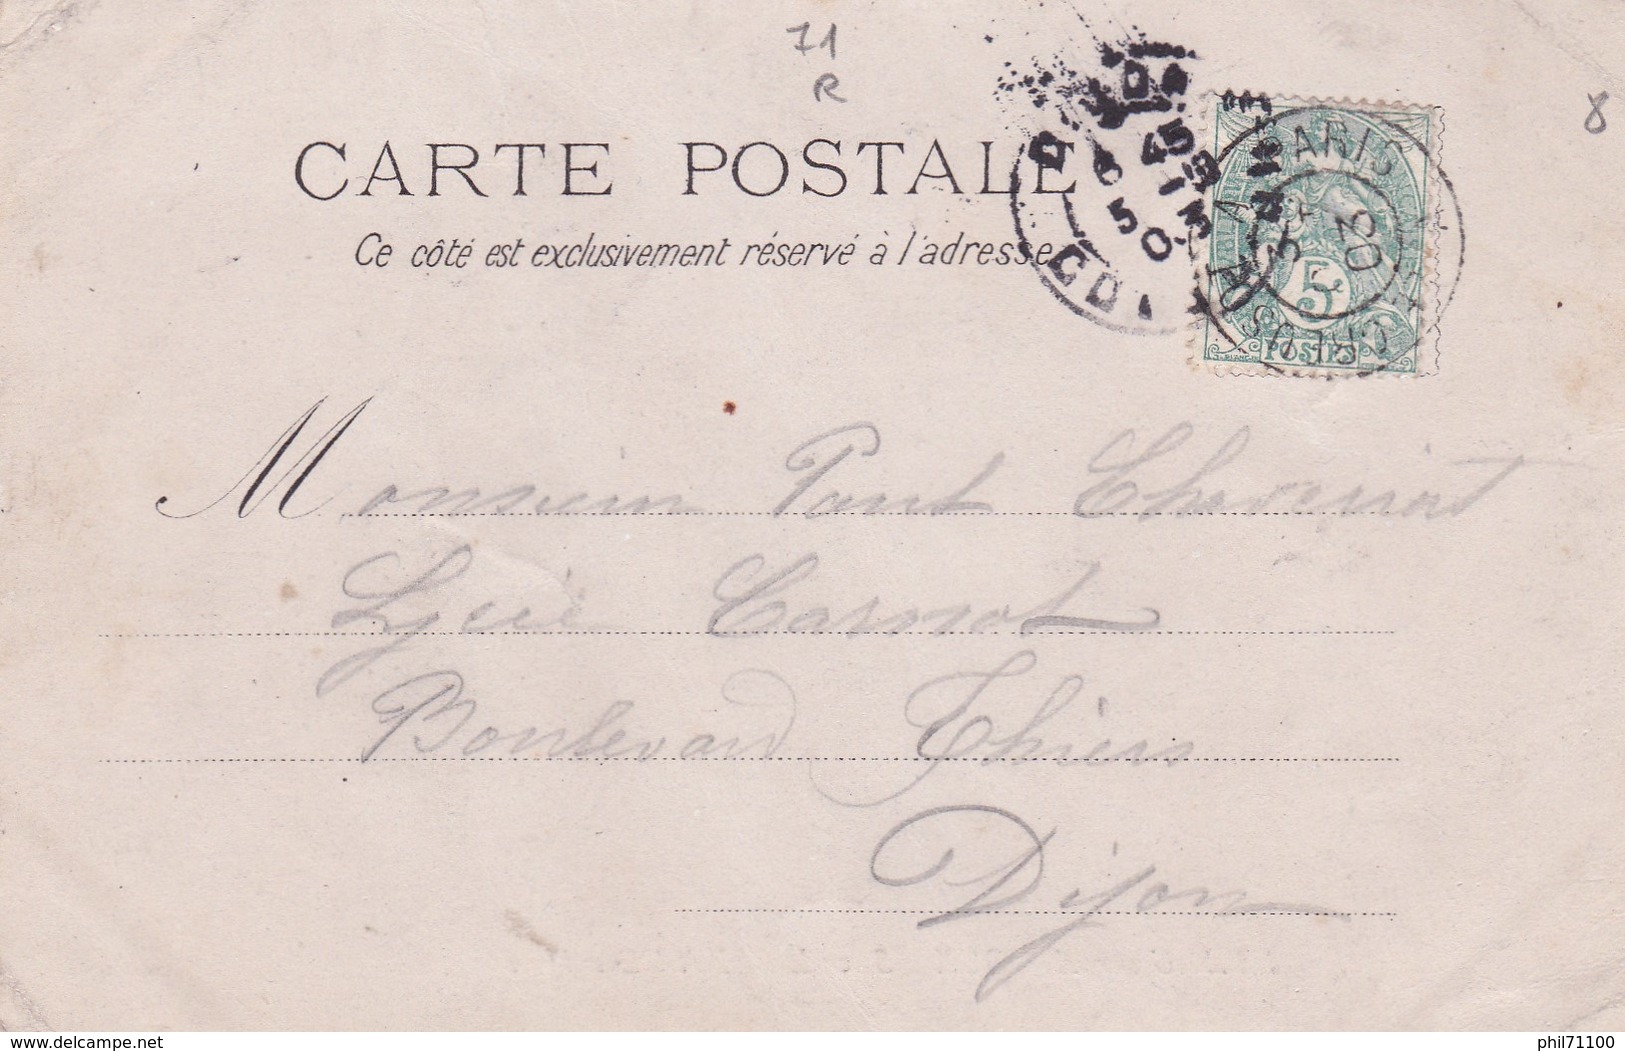 71
R
8
CARTE POSTALE
Ce côté est exclusivement réservé à l'adresse
PARIS
03
5c
POSTES
45
13
50
Monsieur Paul
Lycée Carnot
Boulevard Thiers
Dijon
www.delcampe.net
phil71100